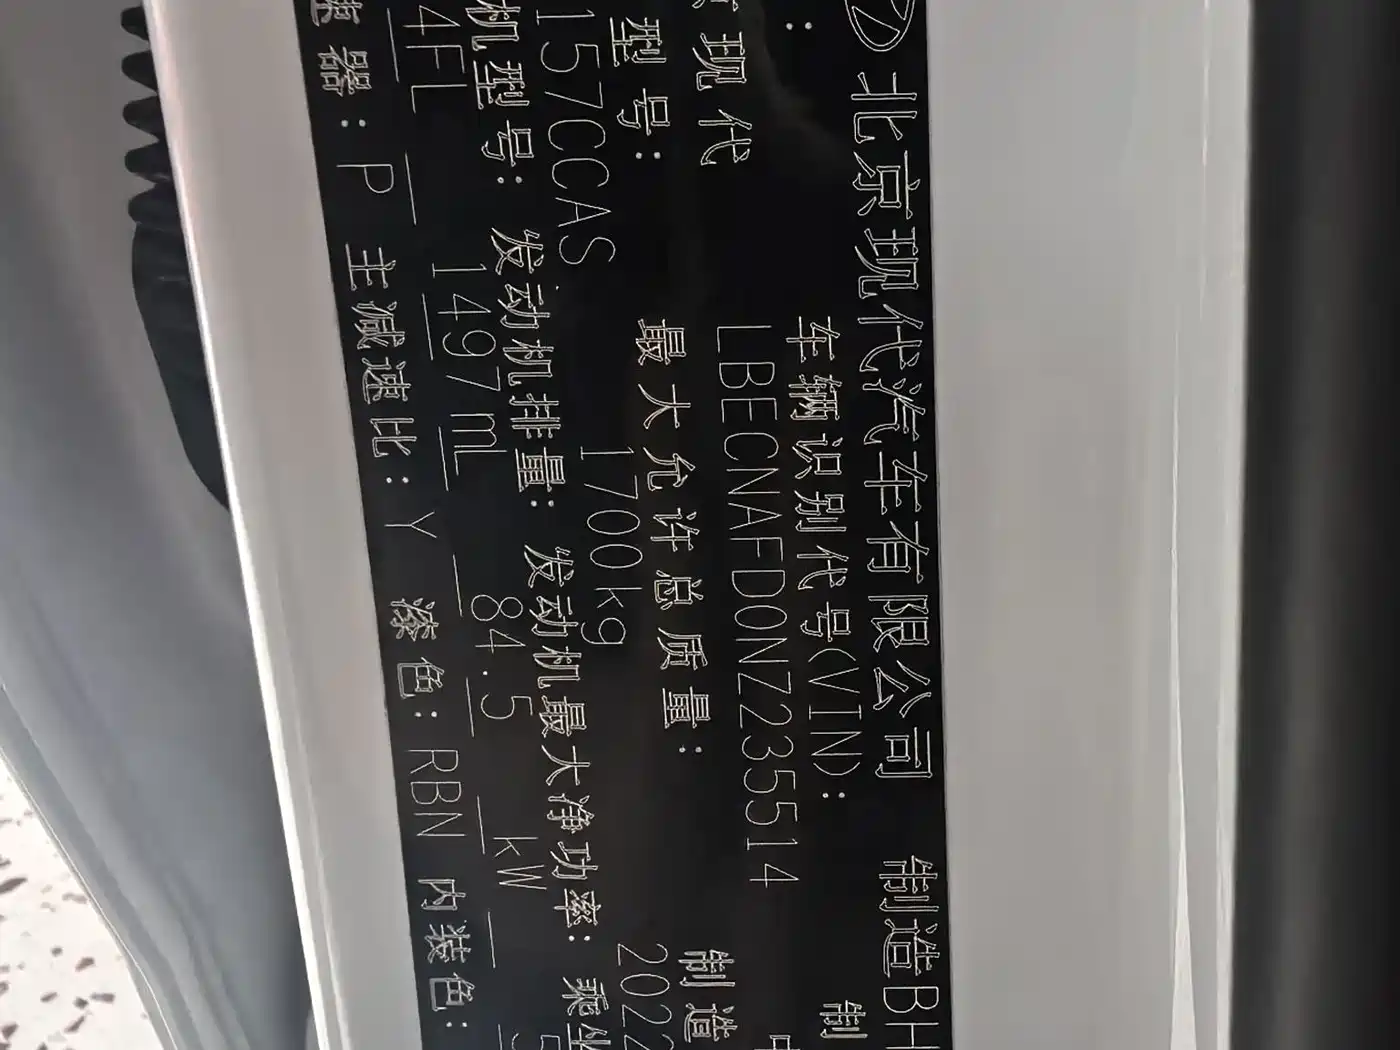 北京现代汽车有限公司 制造BH
现代 车辆识别代号(VIN): 制
LBECNAFD0NZ235514
型号: 最大允许总质量: 制造
157CCAS 1700kg 2022
机型号: 发动机排量: 发动机最大净功率: 乘坐
4FL 1497mL 84.5 kW 5
速器: P 主减速比: Y 漆色: RBN 内装色: